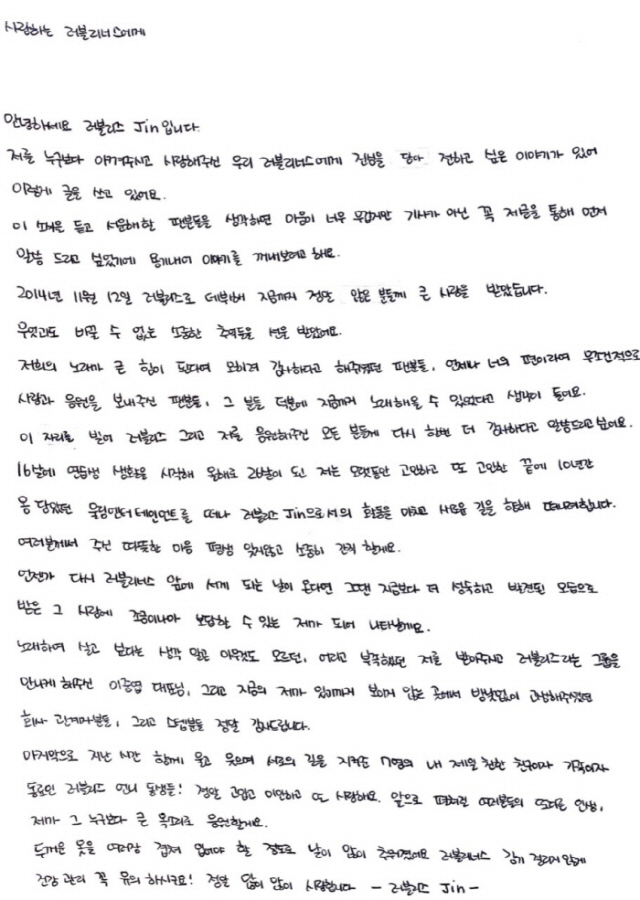 사랑하는 러블리너스에게
안녕하세요 러블리즈 Jin입니다.
저를 누구보다 아껴주시고 사랑해주신 우리 러블리너스에게 진심을 담아 전하고 싶은 이야기가 있어
이렇게 글을 쓰고 있어요.
이 소식을 듣고 서운해할 팬분들을 생각하면 마음이 너무 무겁지만 기사가 아닌 꼭 저희를 통해 먼저
말씀 드리고 싶었기에 용기내어 이야기를 꺼내보려고 해요.
2014년 11월 12일 러블리즈로 데뷔해 지금까지 정말 많은 분들께 큰 사랑을 받았습니다.
무엇과도 바꿀 수 없는 소중한 추억들을 선물 받았어요.
저희의 노래가 큰 힘이 된다며 오히려 감사하다고 해주셨던 팬분들, 언제나 너의 편이라며 무조건적으로
사랑과 응원을 보내주신 팬분들, 그 분들 덕분에 지금까지 노래해올 수 있었다고 생각이 들어요.
이 자리를 빌어 러블리즈 그리고 저를 응원해주신 모든 분들께 다시 한번 더 감사하다고 말씀드리고 싶어요.
16살에 연습생 생활을 시작해 올해로 26살이 된 저는 오랫동안 고민하고 또 고민한 끝에 10년간
몸 담았던 울림엔터테인먼트를 떠나 러블리즈 Jin으로서의 활동을 마치고 새로운 길을 향해 떠나려합니다.
여러분께서 주신 따뜻한 마음 평생 잊지않고 소중히 간직 할게요.
언젠가 다시 러블리너스 앞에 서게 되는 날이 온다면 그땐 지금보다 더 성숙하고 발전된 모습으로
받은 그 사랑에 조금이나마 보답할 수 있는 제가 되어 나타날게요.
노래하며 살고 싶다는 생각 말곤 아무것도 모르던, 어리고 부족했던 저를 받아주시고 러블리즈라는 그룹을
만나게 해주신 이중엽 대표님, 그리고 지금의 제가 있기까지 보이지 않는 곳에서 밤낮없이 고생해주셨던
회사 관계자분들, 그리고 스텝분들 정말 감사드립니다.
마지막으로 지난 시간 함께 울고 웃으며 서로의 길을 지켜준 7명의 내 제일 친한 친구이자 가족이자
동료인 러블리즈 언니 동생들! 정말 고맙고 미안하고 또 사랑해요. 앞으로 펼쳐질 여러분들의 또다른 인생,
제가 그 누구보다 큰 목소리로 응원할게요.
두꺼운 옷을 여러장 겹쳐 입어야 할 정도로 날이 많이 추워졌어요 러블리너스 감기 걸리지 않게
건강 관리 꼭 유의 하시구요! 정말 많이 많이 사랑합니다 - 러블리즈 Jin -